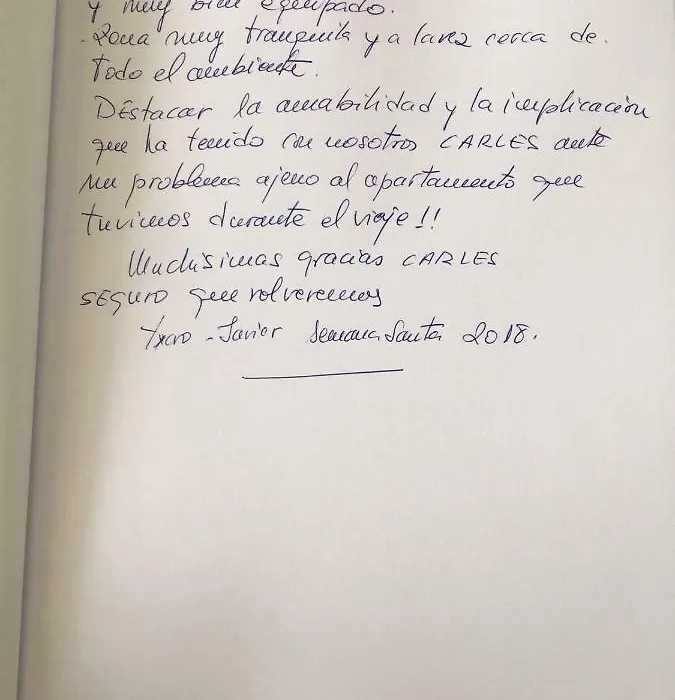 y muy bien equipado.
- Zona muy tranquila y a la vez cerca de.
Todo el ambiente.
Destacar la amabilidad y la implicación
que ha tenido con nosotros CARLES ante
un problema ajeno al apartamento que
tuvimos durante el viaje!!
Muchísimas gracias CARLES
SEGURO que volveremos
Txaro - Javier Semana Santa 2018.